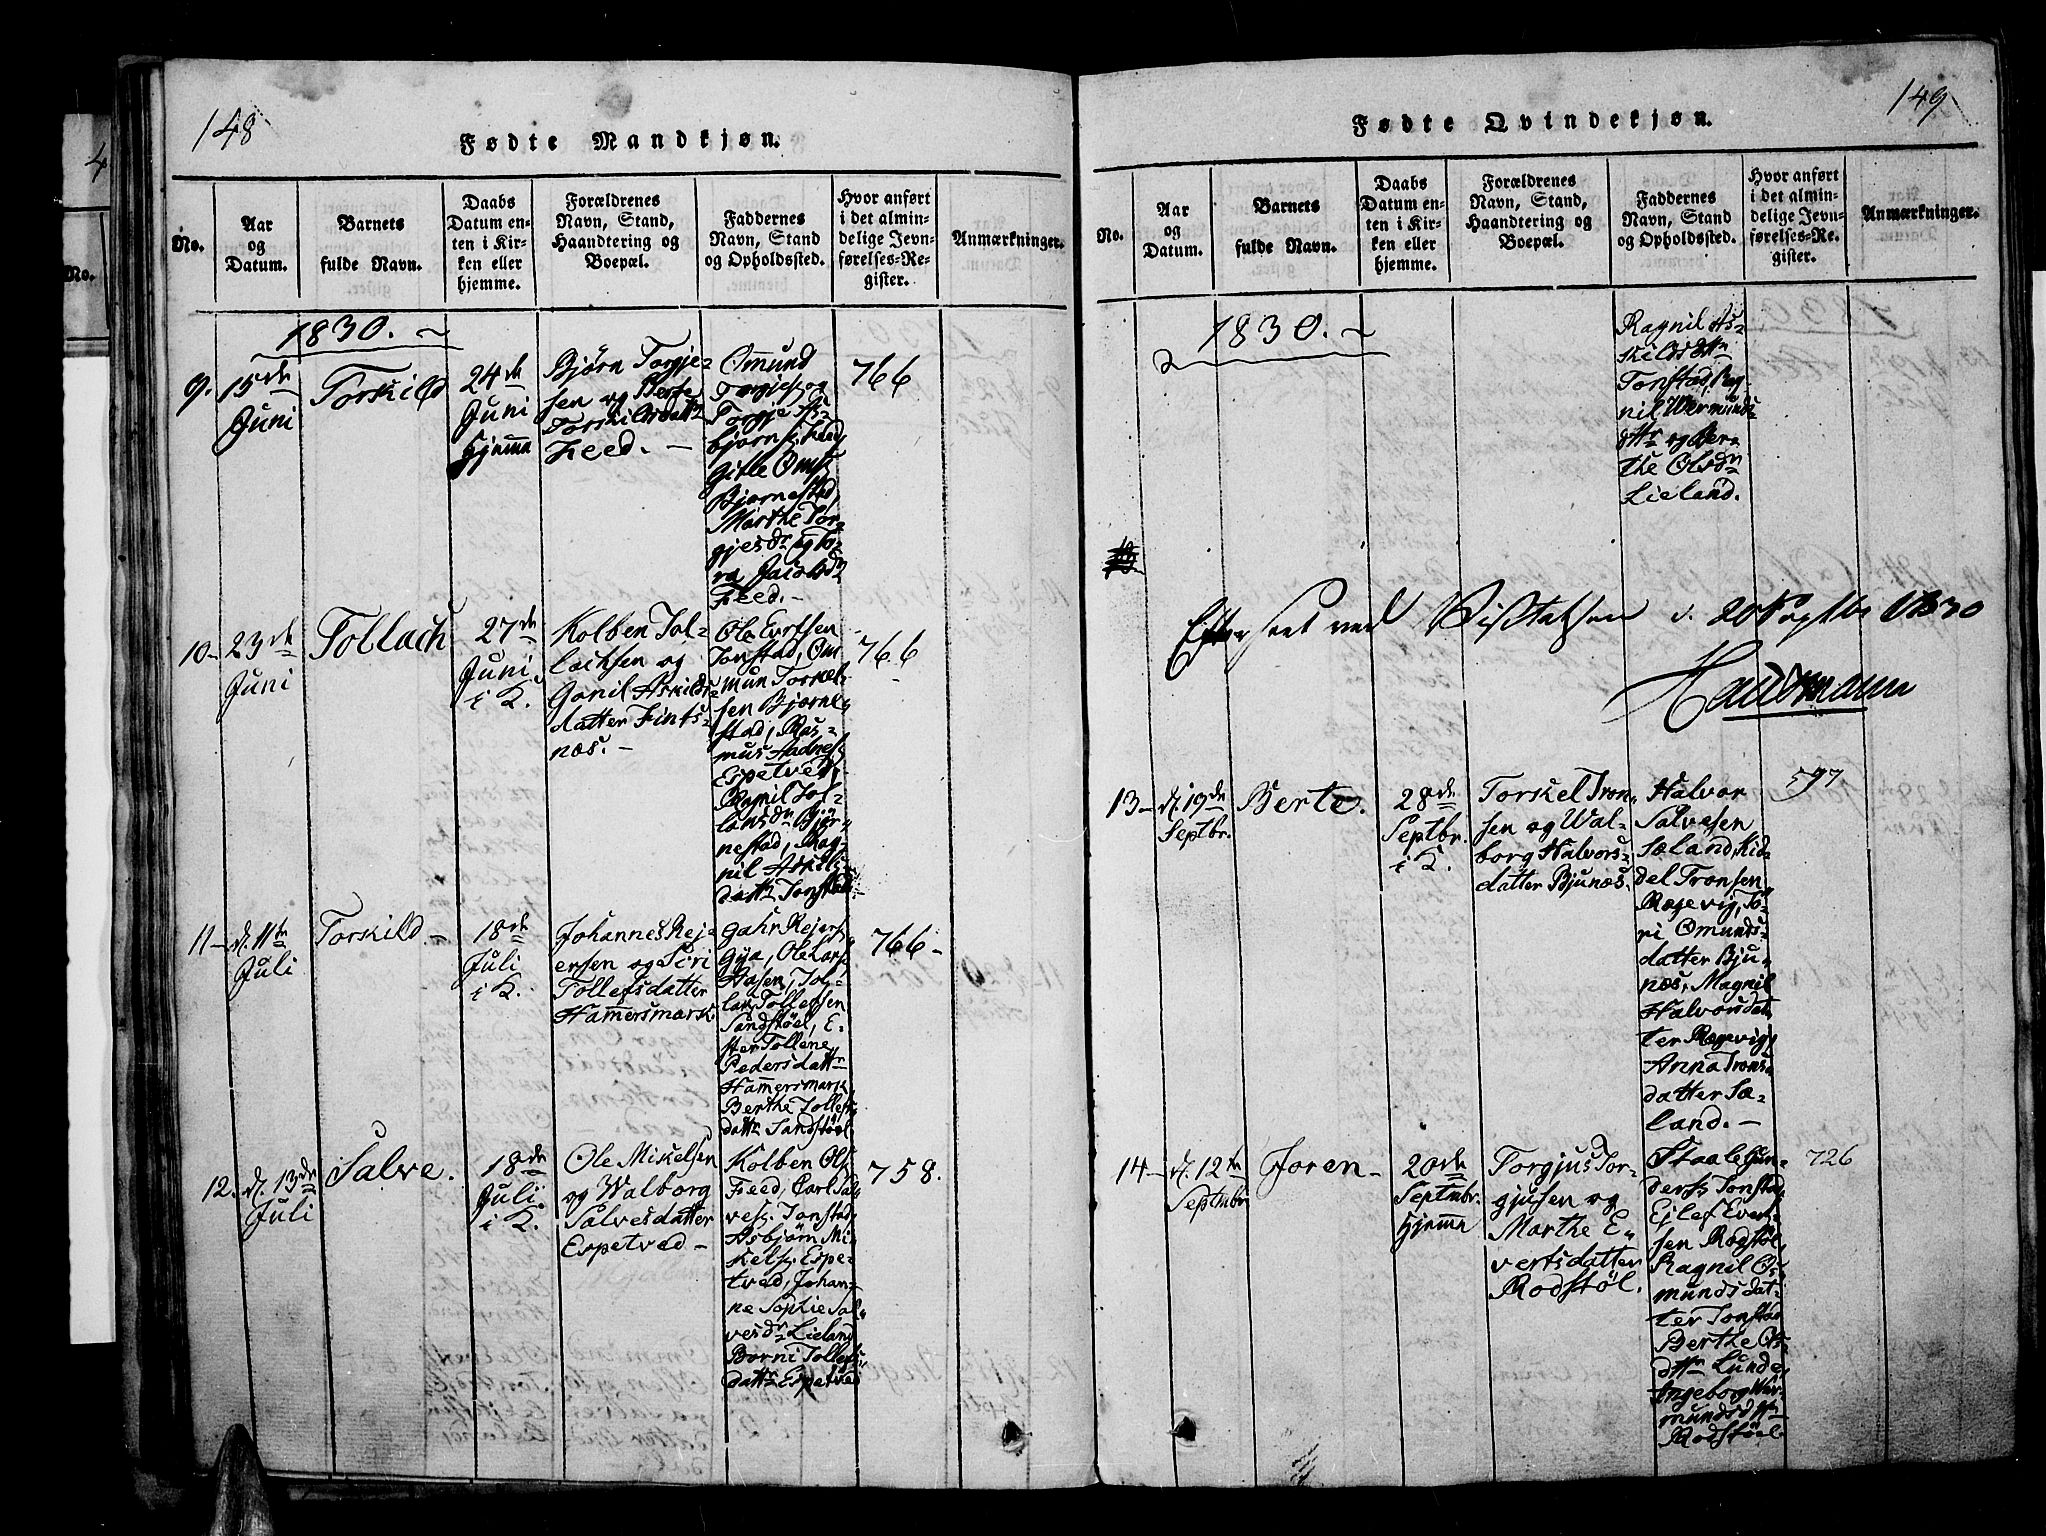 148
Fødte Mandkjøn.
No.
Aar
og
Datum.
Barnets
fulde Navn.
Daabs
Datum en-
ten i Kir-
ken eller
hjemme.
Forældrenes
Navn, Stand,
Haandtering og
Boepæl.
Faddernes
Navn, Stand
og Opholdssted.
Hvor anført
i det almin-
delige Jevn-
førelses-Re-
gister.
Anmærkninger.
1830.
9.
15de
Juni
Torskild
24de
Juni
hjemme
Bjørn Torgje-
sen og Berte
Torskildsdattr
Feed.
Omund
Torgjes. og
Torgje As-
bjørns. Feed,
Gitle Oms.
Bjørnestad,
Marthe Tor-
gjesdr og To-
ra Jacobsdr
Feed.
766
10
23de
Juni
Tollach
27de
Juni
i K.
Kolben Tol-
lachsen og
Gonil Askilds-
datter Fints-
næs.
Ole Evrtsen
Tonstad, Om
mun Torkel-
sen Bjørne-
stad, Ras-
mus Aadnes.
Espetved,
Ragnil Tol-
lansdr Bjør-
nestad, Rag-
nil Askilds-
dattr Tonstad
766
11
d. 11te
Juli
Torskild
18de
Juli
i K.
Johannes Rej-
ersen og Siri
Tollefsdatter
Hamersmark
Gahn Rejers.
Gya, Ole Lars.
Hasen, Tol-
lav Tollefsen
Sandstøel, E-
ster Tollene
Pedersdattr
Hamersmark
Berthe Tollefs-
dattr Sandstøel
766
12.
d. 13de
Juli
Salve.
18de
Juli
i K.
Ole Mikelsen
og Walborg
Salvesdatter
Espetved
Kolben Ols.
Feed, Carl Sal-
ves. Tonstad,
Asbjørn Mi-
kels. Espe-
tved, Johan-
ne Sophie Sal-
vesdr Lieland
Borni Tollefs-
dattr Espetved
758.
149
Fødte Qvindekjøn.
No.
Aar
og
Datum.
Barnets
fulde Navn.
Daabs
Datum en-
ten i Kir-
ken eller
hjemme.
Forældrenes
Navn, Stand,
Haandtering og
Boepæl.
Faddernes
Navn, Stand
og Opholdssted.
Hvor anført
i det almin-
delige Jevn-
førelses-Re-
gister.
Anmærkninger.
1830.
Ragnil As-
kildsdttr
Tonstad, Rag-
nil Wermunds-
dttr og Ber-
the Olsdr
Lieland.
Efterseet ved Visitatsen d. 20 Septbr 1830
13
d. 19de
Septbr.
Berte.
28de
Septbr.
i K.
Torskel Tron-
sen og Wal-
borg Halvors-
datter Bjunæs.
Halvor
Salvesen
Sæland, Kid-
del Tronsen
Rægevig, To-
ri Omunds-
datter Bju-
næs, Magnil
Halvorsdat-
ter Rægevig,
Anna Trons-
datter Sæ-
land.
597
14
d. 12te
Septmbr
Joren
20de
Septmbr.
hjemme
Torgjus Tor-
gjusen og
Marthe E-
vertsdatter
Rodstøl.
Staale Gun-
ders. Tonstad,
Ejlef Evert-
sen Rodstøl,
Ragnil Os-
mundsdat-
ter Tonstad
Berthe Ols-
dttr Lunde,
Ingeborg Wer-
mundsdttr
Rodstøel
726